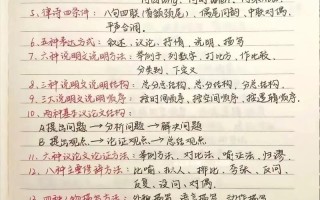 5、律诗四条件：八句四联（首颔颈尾）、偶尾同韵、中联对偶、
平声合调。
6、五种表达方式：叙述、议论、抒情、说明、描写
7、六种说明文说明方法：举例子、列数字、打比方、作比较、
分类别、下定义
8、三种说明文说明结构：总分总结构、总分结构、分总结构、
9、三大说明文说明顺序：按时间顺序、按空间顺序、按逻辑顺序、
10、两种基本议论文结构：
A 提出问题 → 分析问题 → 解决问题
B 提出观点 → 论证观点 → 总结观点
11、六种议论文论证方法：举例法、对比法、喻证法、归谬
12、八种主要修辞方法：比喻、拟人、排比、夸张、反问
反复、设问、对偶、